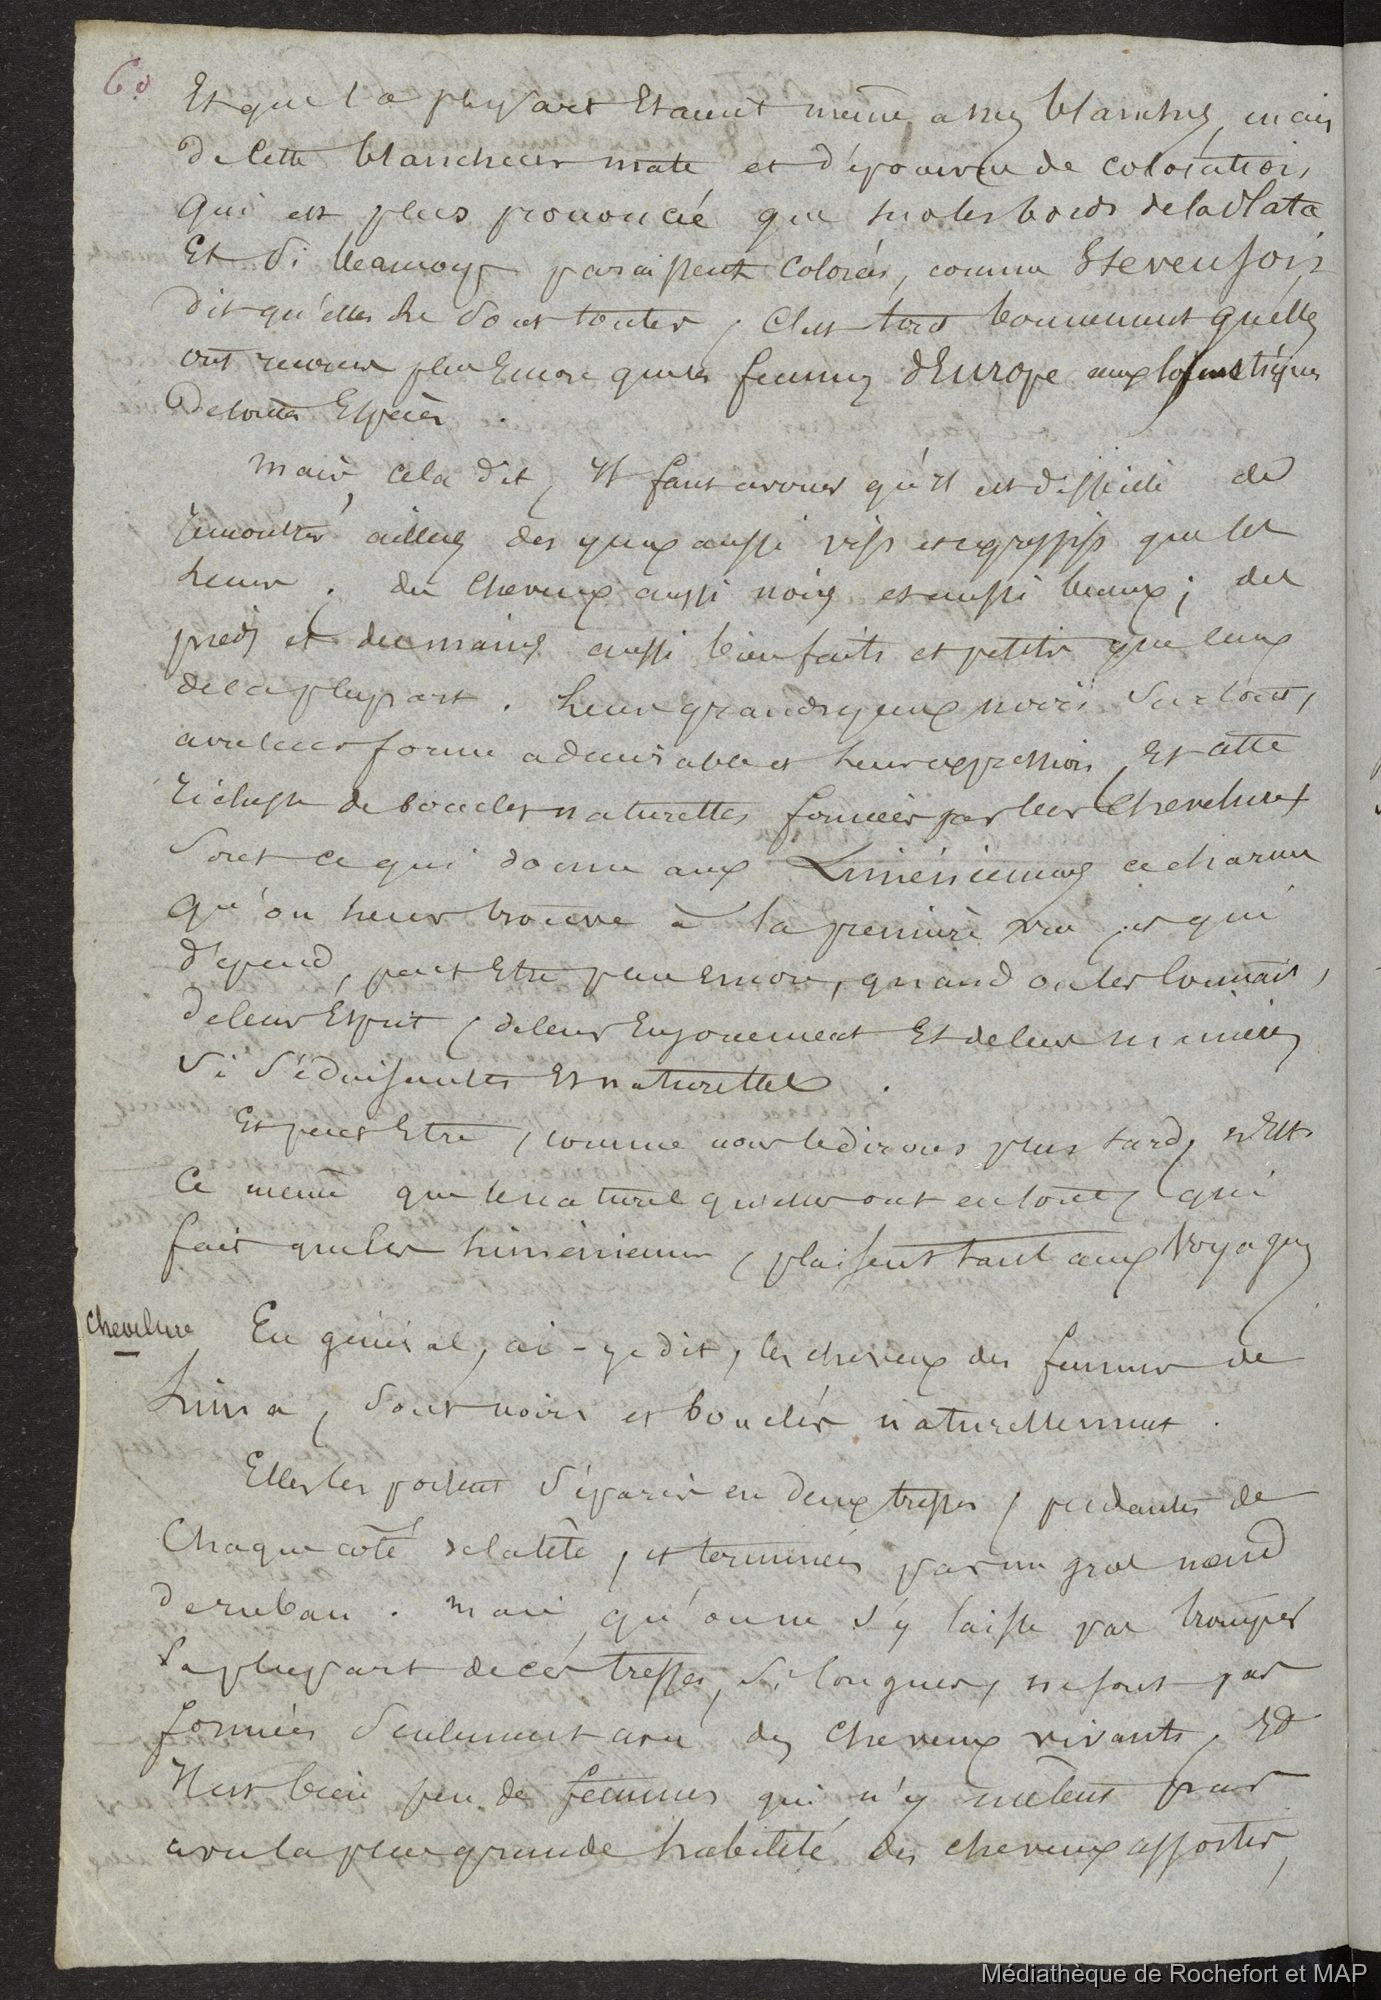 60
Et que la plupart Etaient même assez blanches, mais
de cette blancheur mate et dépourvue de coloration,
qui est plus prononcée que sur les bords de la Plata
Et si beaucoup paraissent colorés, comme Stevenson
dit qu'elles le sont toutes, c'est tout bonnement qu'elles
ont recours plus Encore que les femmes d'Europe aux cosmétiques
de toutes Espèces.
mais, cela dit, Il faut avouer qu'il est difficile de
rencontrer ailleurs des yeux aussi vifs et expressifs que les
leurs; des cheveux aussi noirs et aussi beaux; des
pieds et des mains aussi bien faits et petits que ceux
de la plupart. Leurs grands yeux noirs surtout,
avec leur forme admirable et leur expression, Et cette
richesse de boucles naturelles formées par leur chevelure,
sont ce qui donne aux Liméniennes ce charme
qu'on leur trouve à la première vue, et qui
dépend, peut Etre plus encore, quand on les connait,
de leur Esprit, de leur Enjouement Et de leurs manières
si séduisantes Et naturelles.
Et peut Etre, comme nous le dirons plus tard, n'Est
ce même que le naturel qu'elles ont en tout, qui
fait que les Liméniennes, plaisent tant aux Voyageurs
chevelure
En général, ai-je dit, les cheveux des femmes de
Lima, sont noirs et bouclés naturellement.
Elles les portent séparés en deux tresses, pendantes de
chaque côté de la tête, et terminées par un gros noeud
de ruban. mais, qu'on ne s'y laisse pas tromper
la plupart de ces tresses, si longues, ne sont pas
formées seulement avec des cheveux vivants, Et
Il est bien peu de femmes qui n'y mêlent pas
avec la plus grande habileté des cheveux assortis,
Médiathèque de Rochefort et MAP